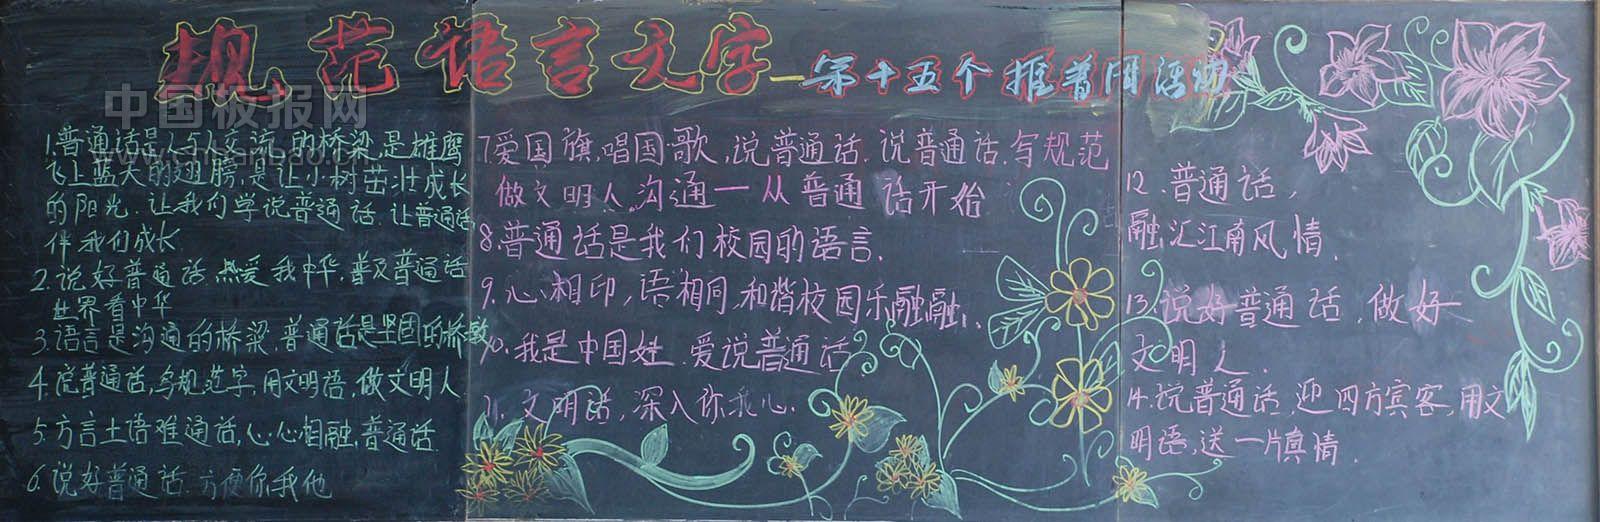 规范语言文字
—第十五个推普周活动
中国板报网
1.普通话是人与人交流的桥梁,是雄鹰
飞上蓝天的翅膀,是让小树茁壮成长
的阳光.让我们学说普通话.让普通话
伴我们成长
2.说好普通话,热爱我中华,普及普通话
世界看中华
3.语言是沟通的桥梁,普通话是坚固的桥墩
4.说普通话,写规范字,用文明语,做文明人
5.方言土语难通话,心心相融,普通话.
6.说好普通话.方便你我他
7.爱国旗,唱国歌,说普通话.说普通话.写规范
做文明人.沟通一从普通话开始
8.普通话是我们校园的语言.
9.心相印,语相同,和谐校园乐融融.
10.我是中国娃.爱说普通话
11.文明话,深入你我心.
12.普通话,
融汇江南风情.
13.说好普通话,做好
文明人.
14.说普通话,迎四方宾客,用文
明语,送一片真情.